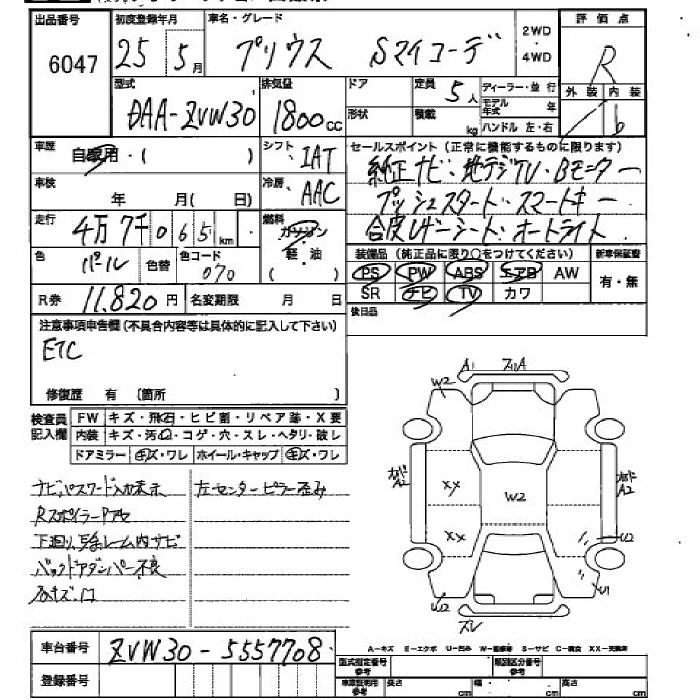 出品番号
6047
初度登録年月
25 5月
車名・グレード
プリウス Sマイコーデ
2WD
・
4WD
評価点
R
外装 内装
b
型式
DAA-ZVW30
排気量
1800cc
ドア
形状
定員
5人
積載
kg
ディーラー・並行
モデル年式 年
ハンドル 左・右
車歴
自家用・( )
シフト
IAT
車検
年 月( 日)
冷房
AAC
走行
4万7千065km
燃料
ガソリン
軽・油
( )
色
パール
色替
色コード
070
R券 11,820円
名変期限 月 日
セールスポイント(正常に機能するものに限ります)
純正ナビ・地デジTV・Bモニター
プッシュスタート・スマートキー
合皮レザーシート・オートライト
装備品(純正品に限り○をつけてください)
新車保証書
PS PW ABS エアB AW
SR ナビ TV カワ
有・無
後日品
注意事項申告欄(不具合内容等は具体的に記入して下さい)
ETC
修復歴 有 〔箇所 〕
検査員
記入欄
FW キズ・飛石・ヒビ割・リペア跡・X要
内装 キズ・汚・コゲ・穴・スレ・ヘタリ・破レ
ドアミラー キズ・ワレ ホイール・キャップ キズ・ワレ
ナビパスワード入力表示
左センターピラー歪み
Rスポイラー
下廻り
バックドアダンパー不良
A1
スリA
W2
XX
W2
A2
A2
XX
U2
U2
U1
スレ
車台番号
ZVW30-5557708
登録番号
A-キズ E-エクボ U-凹み W-補修跡 S-サビ C-腐食 XX-交換済
型式指定番号
参考
類別区分番号
参考
長さ cm
幅 cm
高さ cm